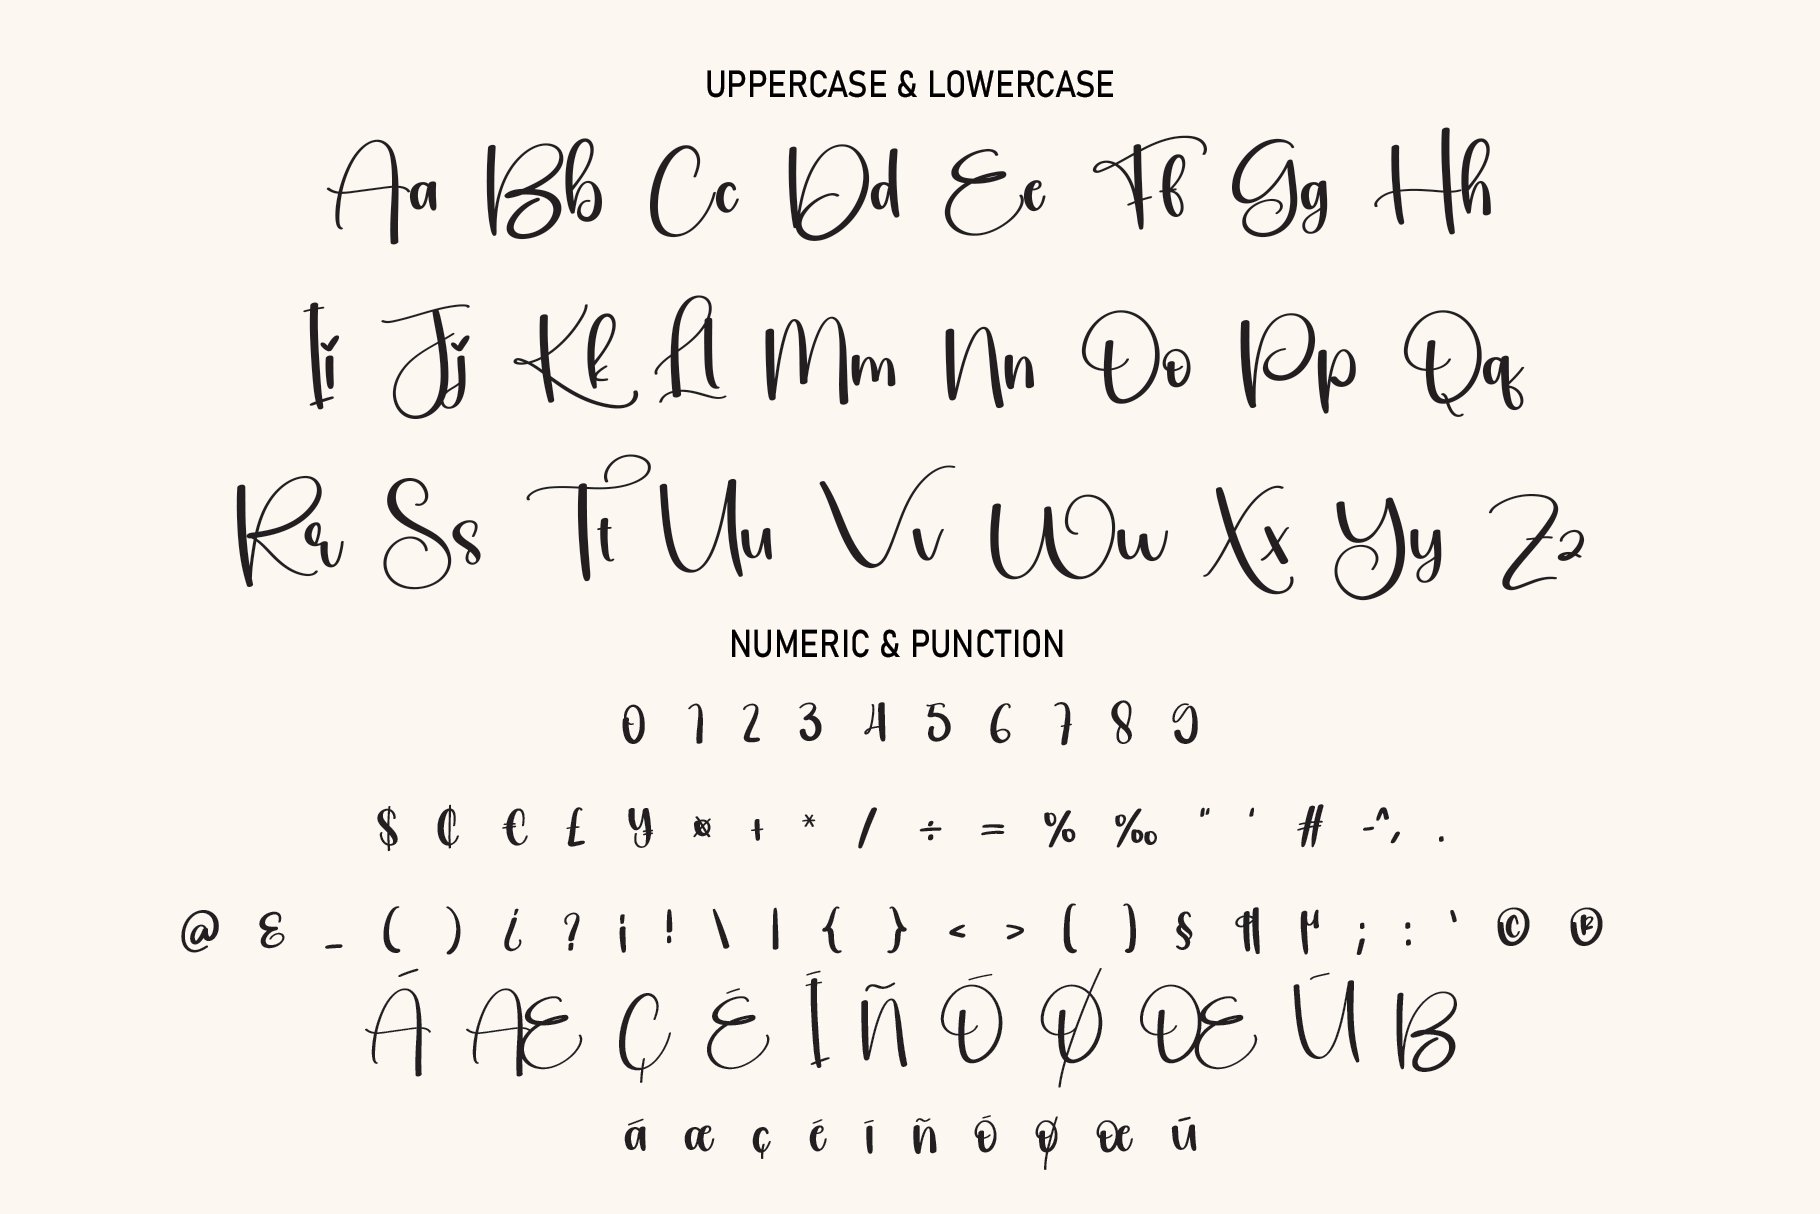 UPPERCASE & LOWERCASE
Aa Bb Cc Dd Ee Ff Gg Hh
Ii Jj Kk Ll Mm Nn Oo Pp Qq
Rr Ss Tt Uu Vv Ww Xx Yy Zz
NUMERIC & PUNCTION
0 1 2 3 4 5 6 7 8 9
$ ¢ € £ ¥ ¤ + * / ÷ = % ‰ " ' # -^, .
@ & _ ( ) ¿ ? ¡ ! \ | { } < > [ ] § ¶ µ ; : ` © ®
Á Æ Ç É Í Ñ Ó Ø Œ Ú B
á æ ç é í ñ ó ø œ ú